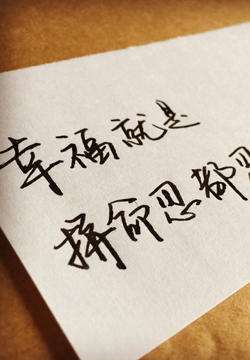 幸福就是
拼命忍都